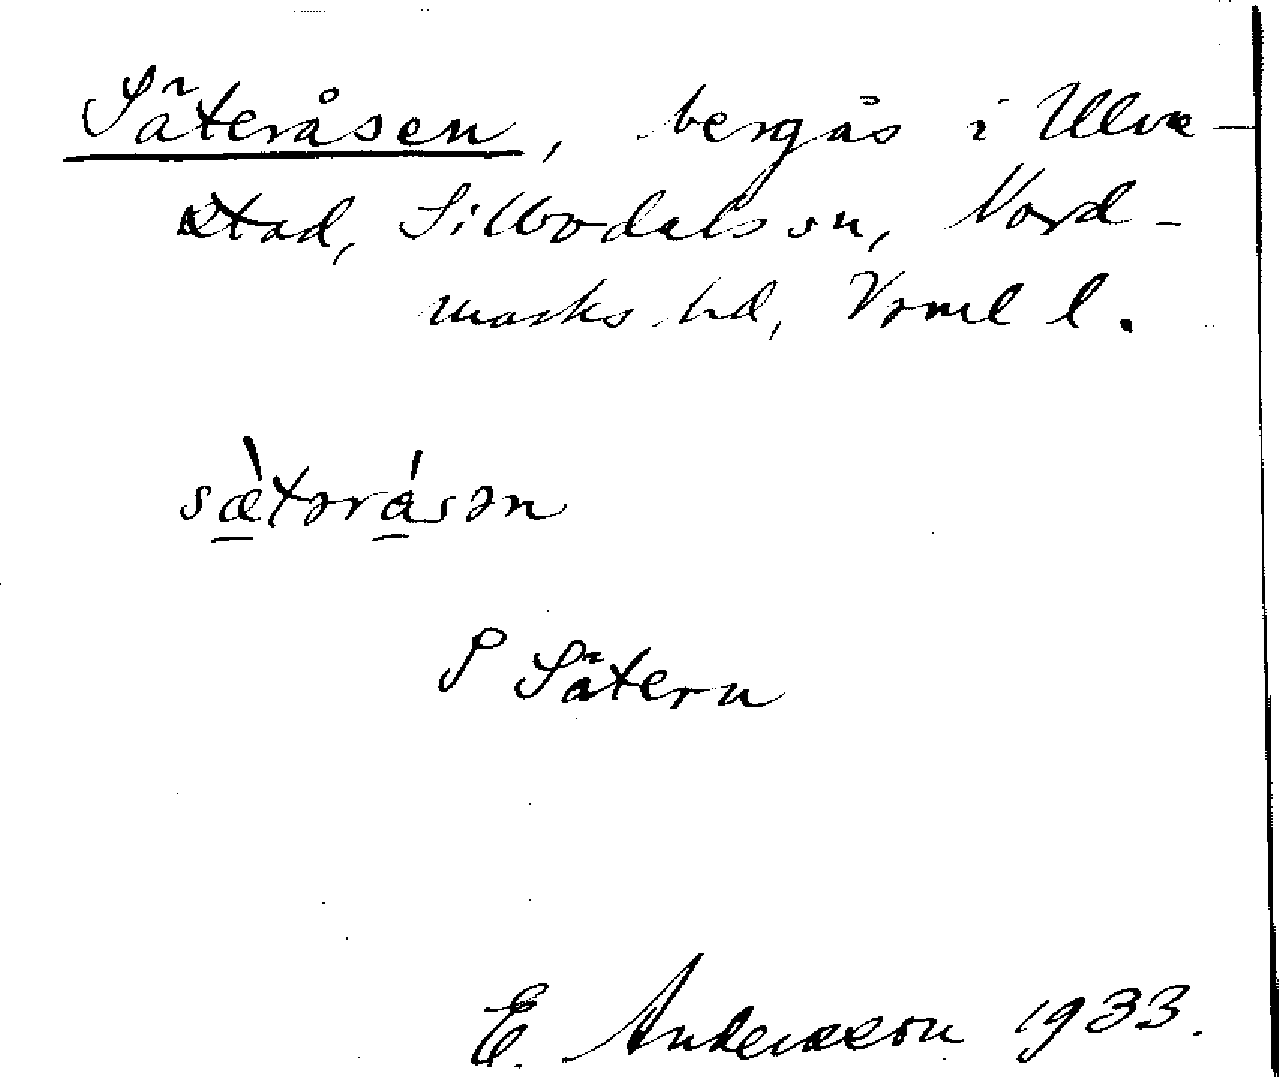 Säteråsen, bergås i Ulve-
stad, Sillbodals sn, Nord-
marks hd, Vrml l.
sæ̀tərásən
P Sätern
E. Andersson 1933.